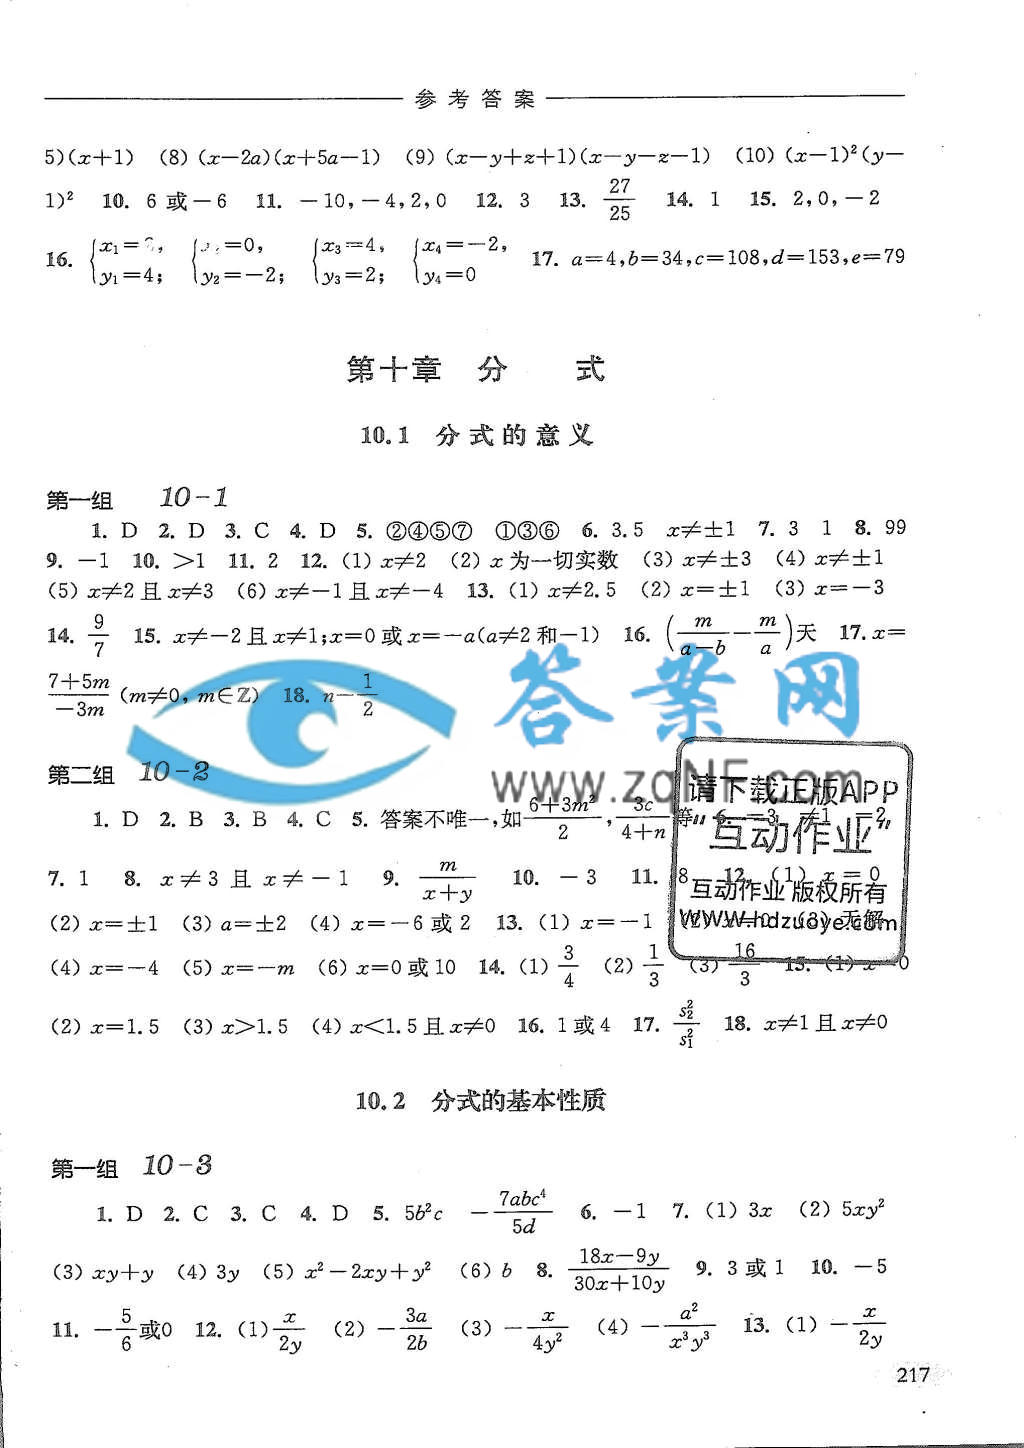 参考答案
5)(x+1) (8) (x-2a)(x+5a-1) (9) (x-y+z+1)(x-y-z-1) (10) (x-1)²(y-
1)² 10. 6 或-6 11. -10,-4,2,0 12. 3 13. 27/25 14. 1 15. 2,0,-2
16. {x₁= , y₁=4; { =0, y₂=-2; {x₃=4, y₃=2; {x₄=-2, y₄=0 17. a=4,b=34,c=108,d=153,e=79
第十章 分 式
10.1 分式的意义
第一组 10-1
1. D 2. D 3. C 4. D 5. ②④⑤⑦ ①③⑥ 6. 3.5 x≠±1 7. 3 1 8. 99
9. -1 10. >1 11. 2 12. (1) x≠2 (2) x为一切实数 (3) x≠±3 (4) x≠±1
(5) x≠2且x≠3 (6) x≠-1且x≠-4 13. (1) x≠2.5 (2) x=±1 (3) x=-3
14. 9/7 15. x≠-2且x≠1;x=0或x=-a(a≠2和-1) 16. (m/(a-b)-m/a)天 17. x=
(7+5m)/(-3m) (m≠0, m∈Z) 18. n-1/2
答案网
www.zqNF.com
第二组 10-2
1. D 2. B 3. B 4. C 5. 答案不唯一,如(6+3m²)/2,3c/(4+n)等 6. =3 ≠1 =2
7. 1 8. x≠3且x≠-1 9. m/(x+y) 10. -3 11. 8 12. (1) x=0
(2) x=±1 (3) a=±2 (4) x=-6或2 13. (1) x=-1 (2) x=0 (3) 无解
请下载正版APP
"互动作业"
互动作业 版权所有
WWW.hdzuoye.com
(4) x=-4 (5) x=-m (6) x=0或10 14. (1) 3/4 (2) 1/3 (3) 16/3 15. (1) x 0
(2) x=1.5 (3) x>1.5 (4) x<1.5且x≠0 16. 1或4 17. s₂²/s₁² 18. x≠1且x≠0
10.2 分式的基本性质
第一组 10-3
1. D 2. C 3. C 4. D 5. 5b²c -7abc⁴/5d 6. -1 7. (1) 3x (2) 5xy²
(3) xy+y (4) 3y (5) x²-2xy+y² (6) b 8. (18x-9y)/(30x+10y) 9. 3或1 10. -5
11. -5/6或0 12. (1) x/2y (2) -3a/2b (3) -x/4y² (4) -a²/x³y³ 13. (1) -x/2y
217